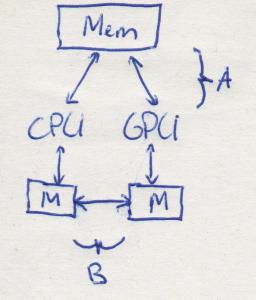 Mem
A
CPU GPU
M M
B